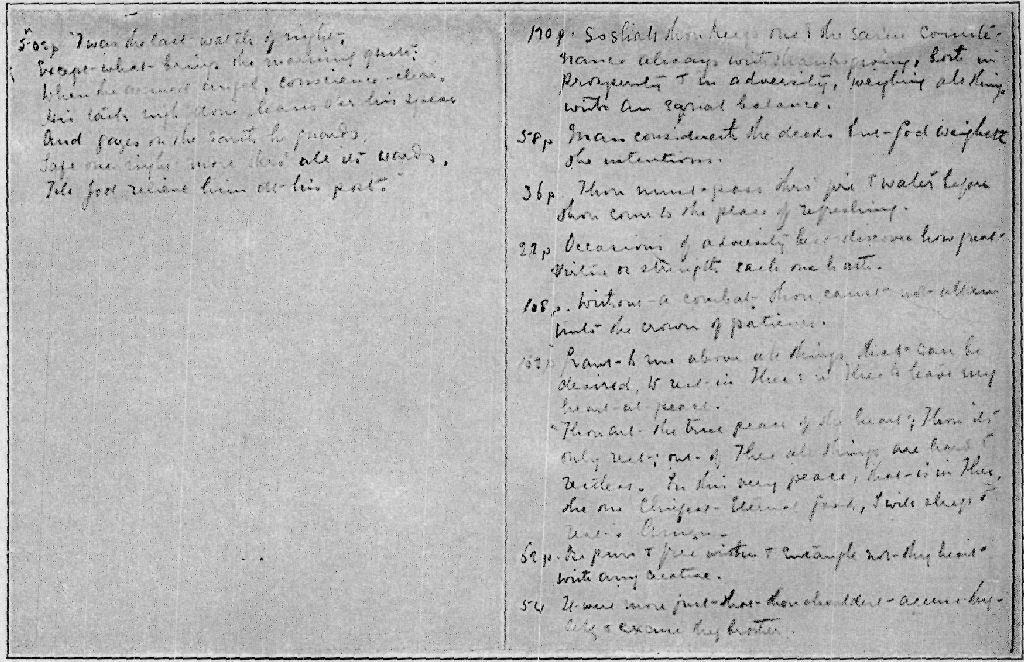 502 p 'Twas the last watch of night,
Except what brings the morning quite;
When the armed angel, conscience-clear,
His task nigh done, leans o'er his spear
And gazes on the earth he guards,
Safe one night more thro' all its wards,
Till God relieve him at his post."
170 p. So shalt thou keep one & the same Counte-
nance always with thanksgiving, both in
Prosperity & in adversity, weighing all things
with an equal balance.
58 p Man considereth the deeds but God weigheth
the intentions.
36 p. Thou must pass thro' fire & water before
thou come to the place of refreshing.
22 p Occasions of adversity best discover how great
virtue or strength each one hath.
108 p. Without a combat thou canst not attain
unto the crown of patience.
Grant to me above all things that can be
desired, to rest in Thee & in Thee to have my
heart at peace.
"Thou art the true peace of the heart; Thou its
only rest; out of Thee all things are hard &
restless. In this very peace, that is in Thee,
the one Chiefest Eternal Good, I will sleep &
rest. Amen.
52 p. Be pure & free within & entangle not thy heart
with any creature.
54 It were more just that thou shouldest accuse thy-
self & excuse thy brother.